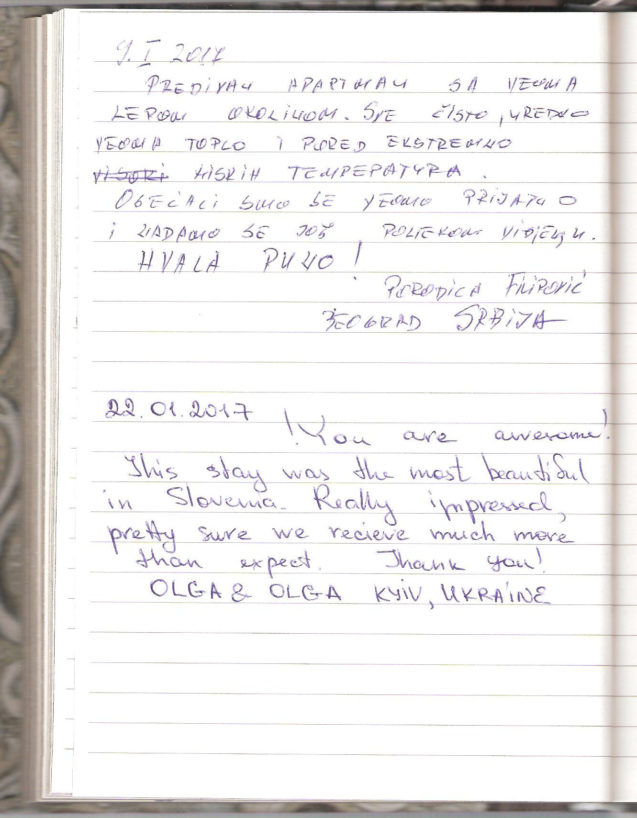 9. I 2017
PREDIVAN APARTMAN SA VEOMA
LEPOM OKOLINOM. SVE ČISTO, UREDNO
VEOMA TOPLO I PORED EKSTREMNO
VISOKI NISKIH TEMPERATURA.
OSEĆALI SMO SE VEOMA PRIJATNO
I NADAMO SE JOŠ PONEKOM VIĐENJU.
HVALA PUNO!
PORODICA FILIPOVIĆ
BEOGRAD SRBIJA
22.01.2017
!You are awesome!
This stay was the most beautiful
in Slovenia. Really impressed,
pretty sure we recieve much more
than expect. Thank you!
OLGA & OLGA KYIV, UKRAINE